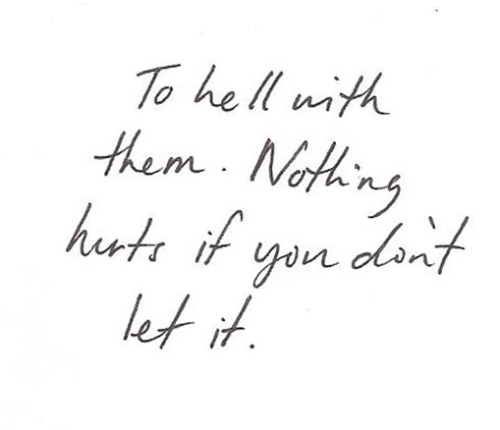 To hell with
them. Nothing
hurts if you don't
let it.